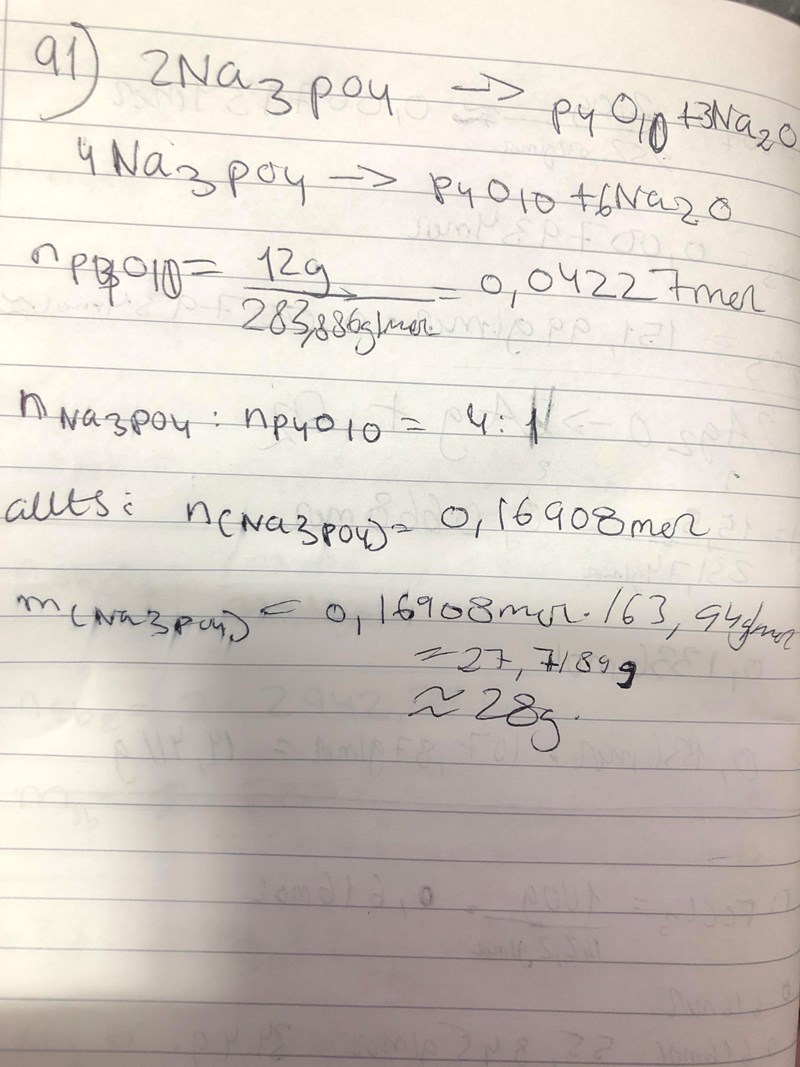 91) 2Na3PO4 -> P4O10 + 3Na2O
4Na3PO4 -> P4O10 + 6Na2O
nP4O10 = 12g / 283,886g/mol = 0,04227mol
nNa3PO4 : nP4O10 = 4:1
allts: n(Na3PO4) = 0,16908mol
m(Na3PO4) = 0,16908mol · 163,94g/mol
= 27,7189g
≈ 28g.